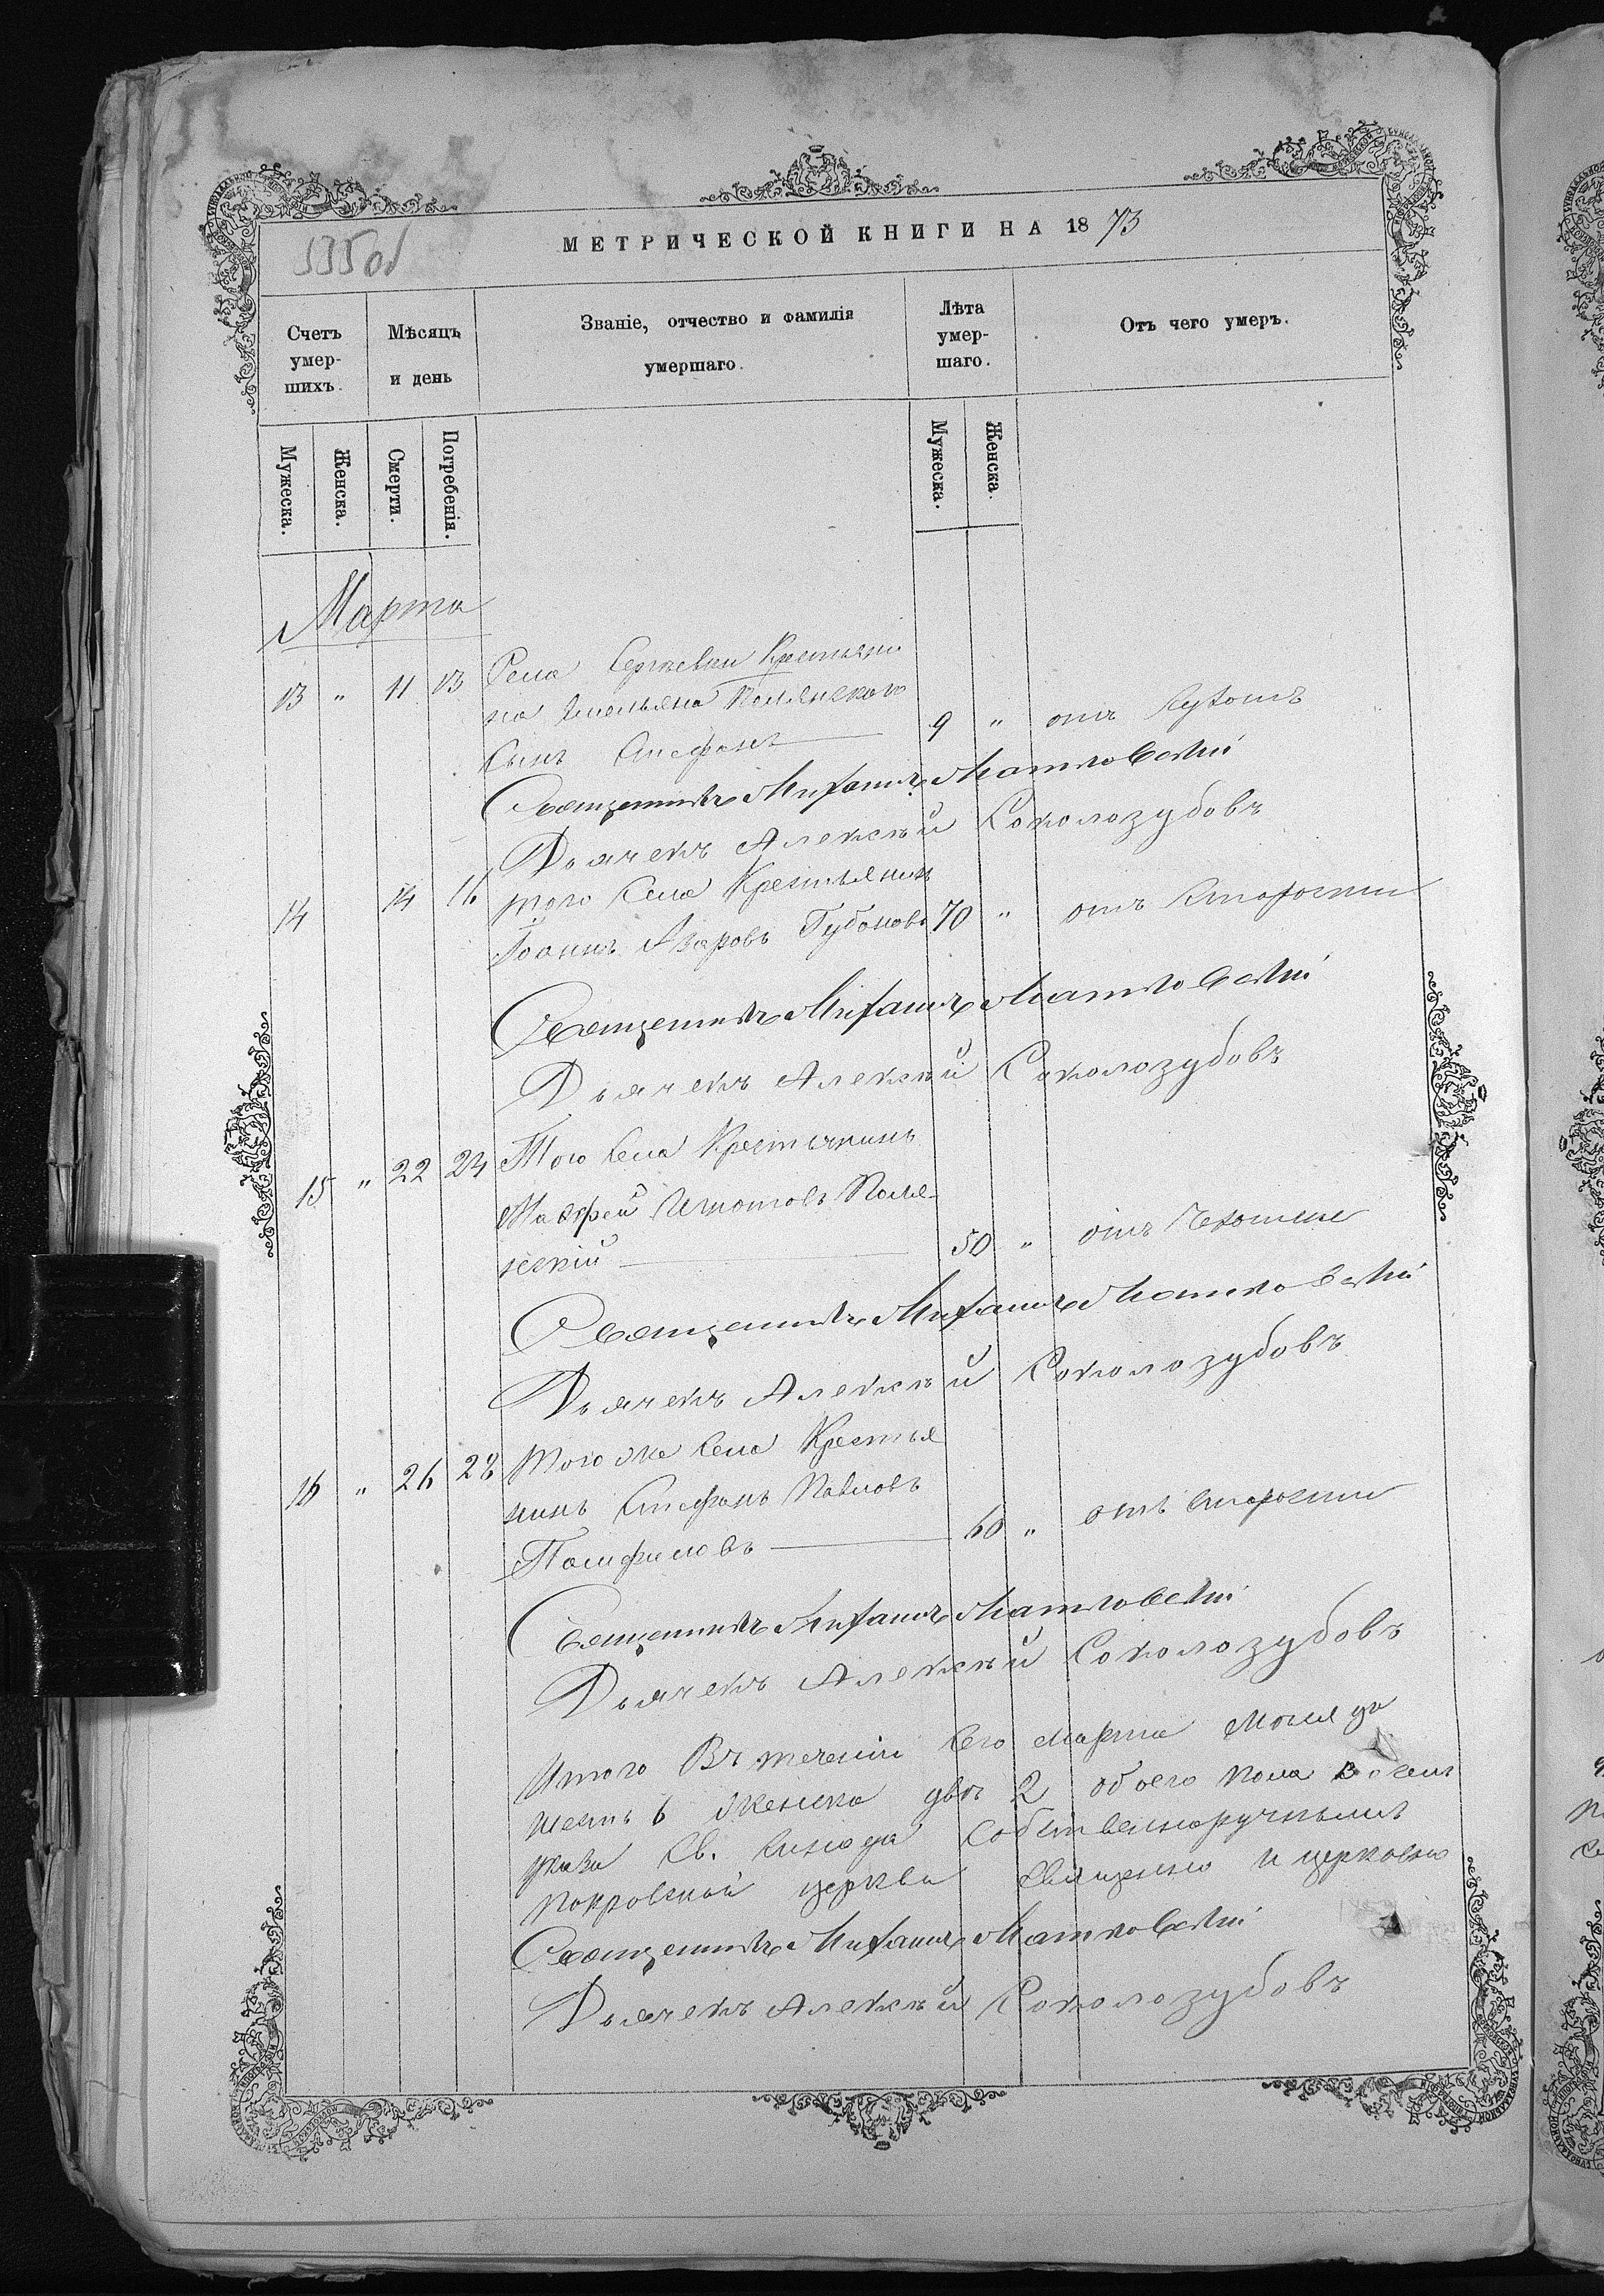 335 об
МЕТРИЧЕСКОЙ КНИГИ НА 1873
Счетъ умер-шихъ.
Мѣсяцъ и день
Званіе, отчество и фамилія умершаго.
Лѣта умер-шаго.
Отъ чего умеръ.
Мужеска.
Женска.
Смерти.
Погребенія.
Мужеска.
Женска.
Марта
13 " 11 13 Села Сергѣевки Крестьяни
на Емельяна Полянскаго
Сынъ Стефанъ 9 " отъ
Священникъ Михаилъ Матковскій
Дьячекъ Алексѣй Соколозубовъ
14 14 16 того Села Крестьянинъ
Іоаннъ Губановъ 70 " отъ Старости
Священникъ Михаилъ Матковскій
Дьячекъ Алексѣй Соколозубовъ
15 " 22 24 Того Села Крестьянинъ
Поля-
нскій 50 " отъ Чахотки
Священникъ Михаилъ Матковскій
Дьячекъ Алексѣй Соколозубовъ
16 " 26 28 того же Села Крестья
нинъ Стефанъ Павловъ
Панфиловъ 60 " отъ Старости
Священникъ Михаилъ Матковскій
Дьячекъ Алексѣй Соколозубовъ
Итого Въ теченіи Сего Марта
шесть 6 женска двѣ 2 обоего пола
указа Св. Синода Собственноручнымъ
Покровской церкви священно и церковно
Священникъ Михаилъ Матковскій
Дьячекъ Алексѣй Соколозубовъ